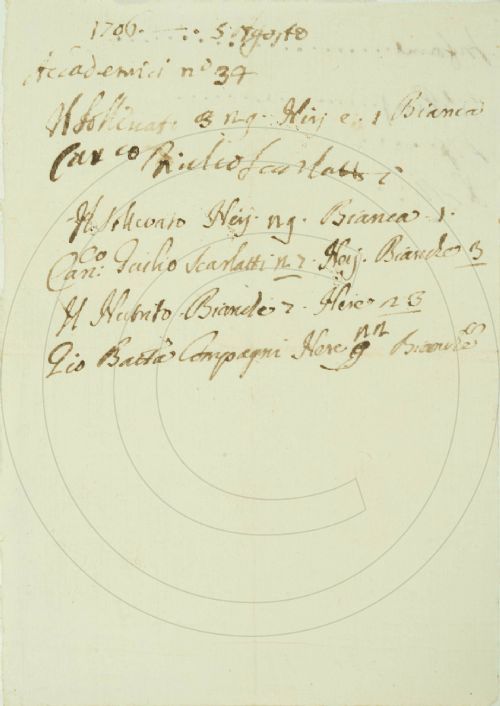 1706. — . 5. Agosto
Accademici n° 34
Il Sollevat. 8 n 9. Neri e. 1 Bianca
Can co Giulio Scarlatti
Il Sollevato n 9. Bianca 1.
Can:co Giulio Scarlatti n 7. Bianche 3
Il Bianche 2. Nere n 8
Gio Batta Compagni Nere 9 Bianche